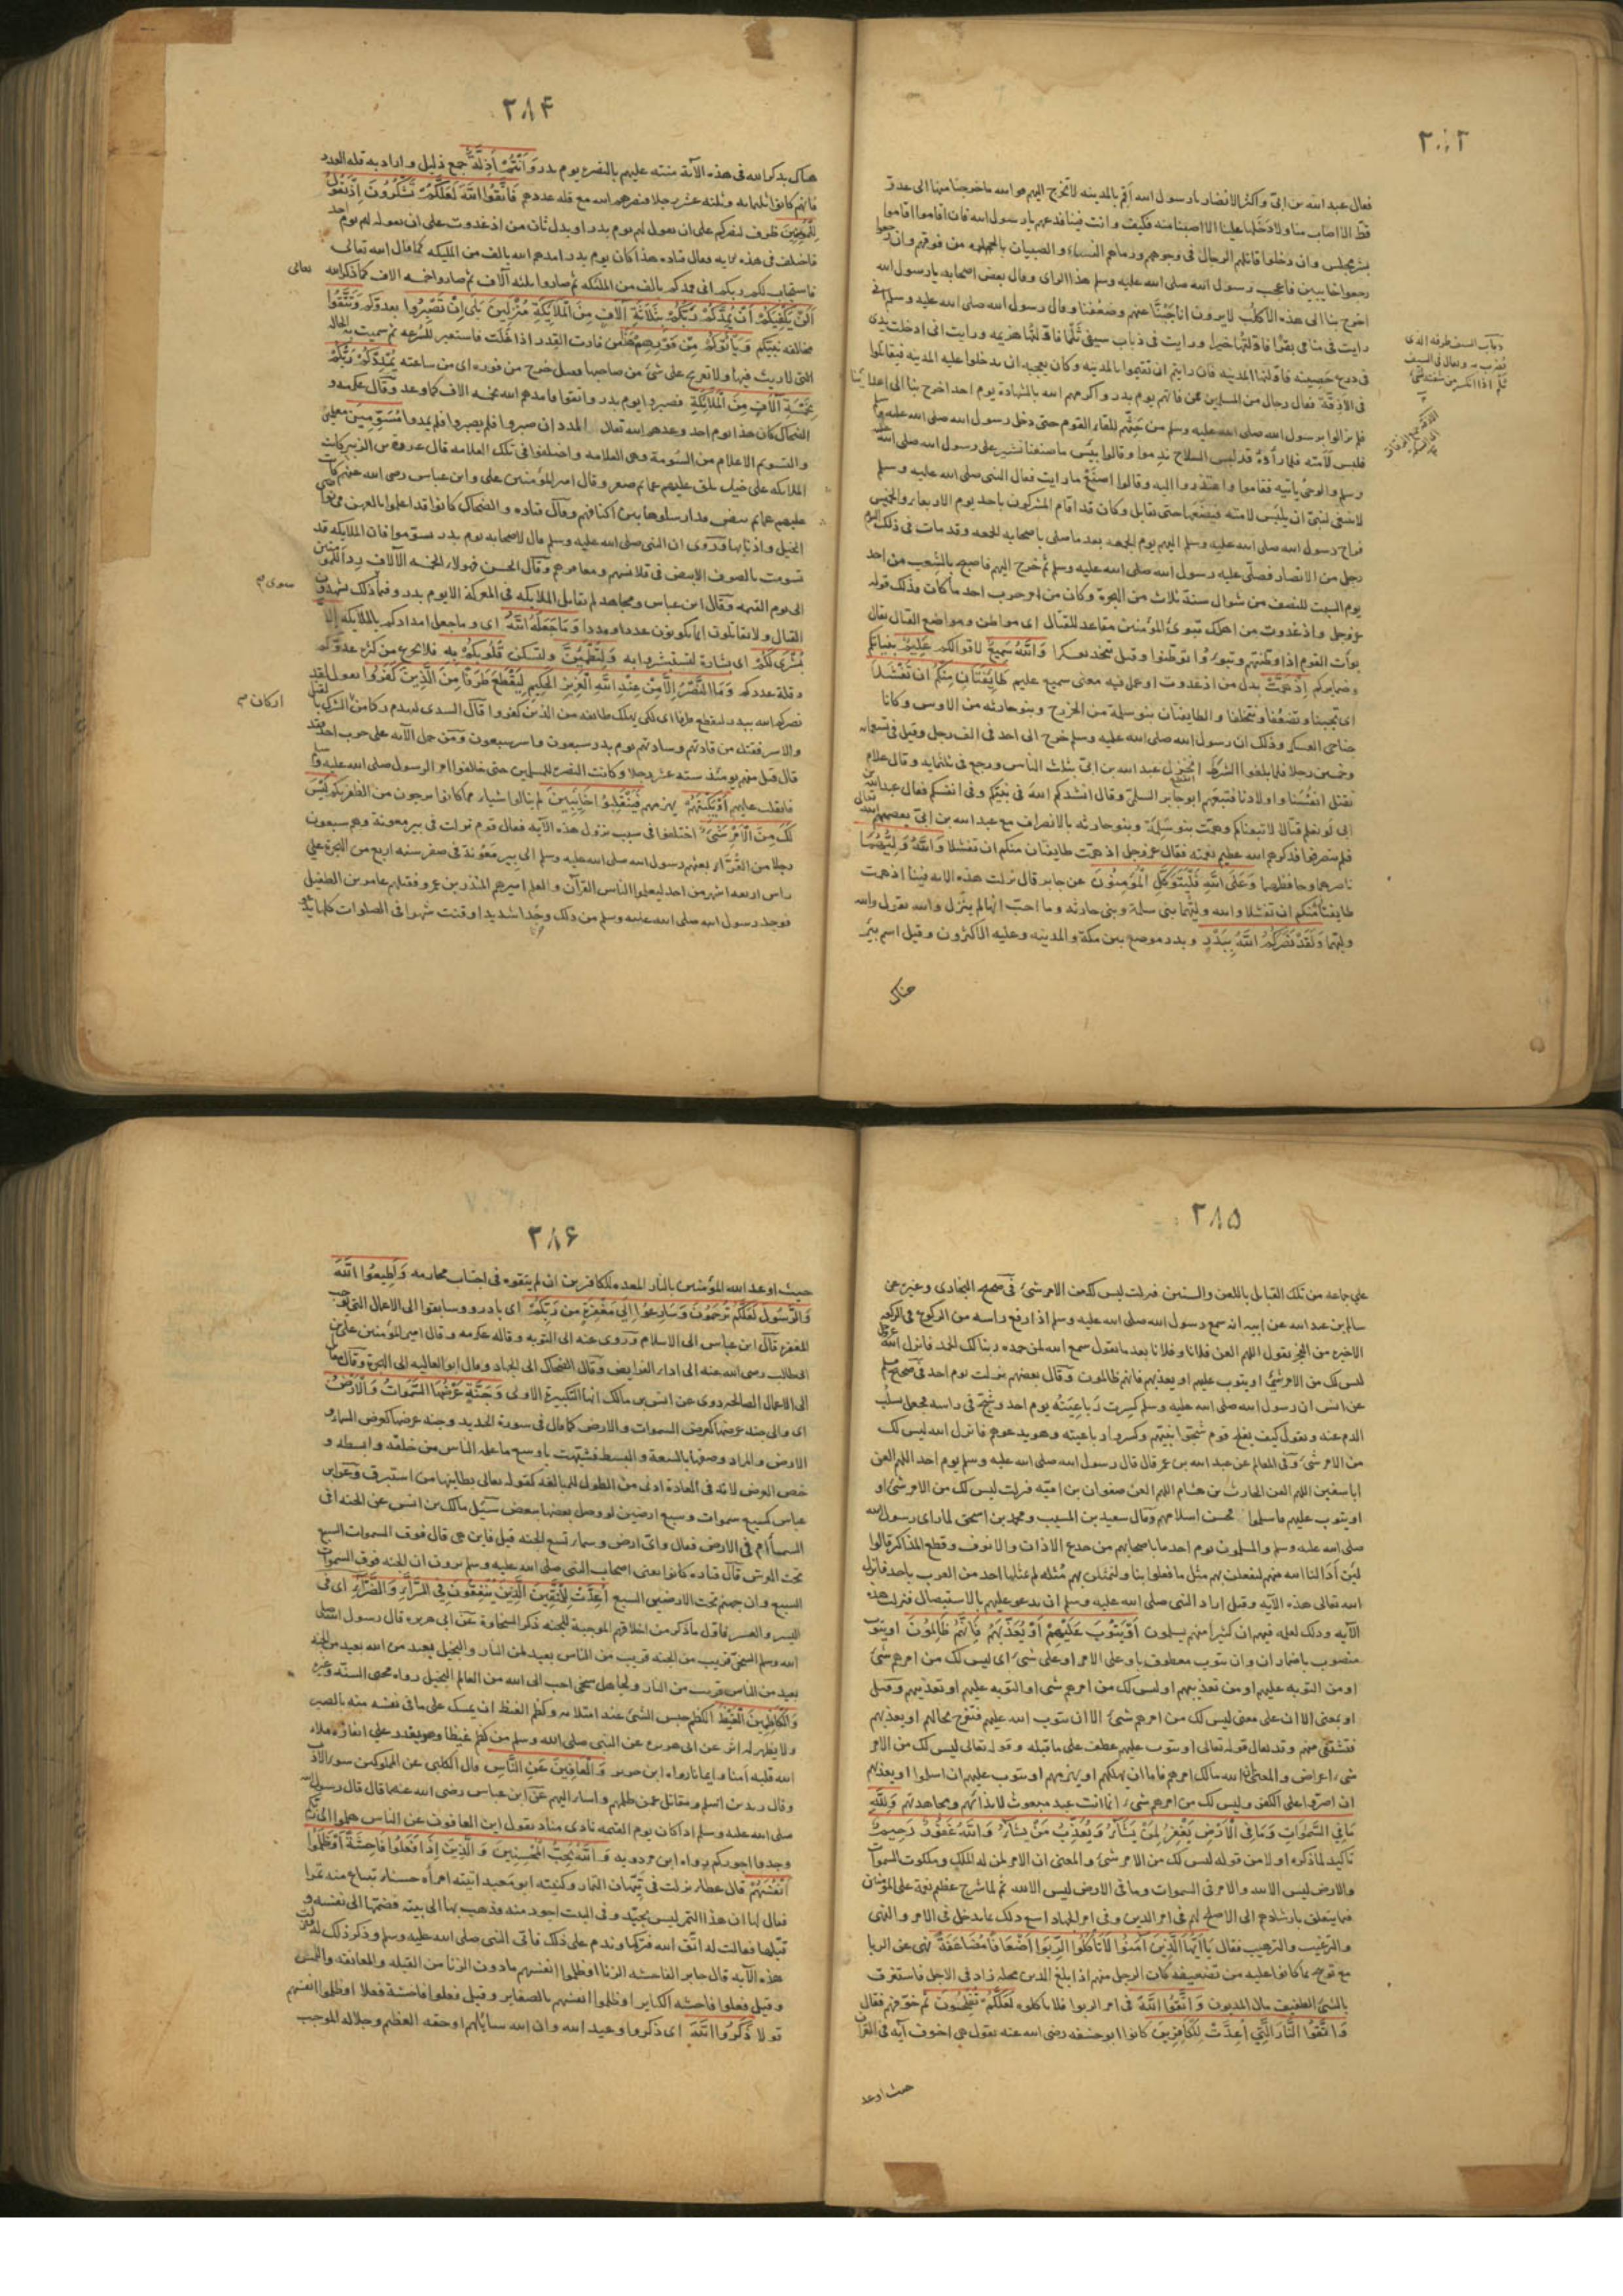 ٣٨٣
فقال عبد الله بن ابىّ واكثر الانصار يا رسول الله اقم بالمدينه لا تخرج اليهم فوالله ما خرجنا منها الى عدو
قط الا اصاب منا ولا دخلها علينا الا اصبنا منه فكيف وانت فينا فدعهم يا رسول الله فان اقاموا اقاموا
بشر مجلس وان دخلوا قاتلهم الرجال فى وجوههم ورماهم النساء والصبيان بالحجاره من فوقهم وان رجعوا
رجعوا خايبين فاعجب رسول الله صلى الله عليه وسلم هذا الراى وقال بعض اصحابه يا رسول الله
اخرج بنا الى هذه الأكلب لا يرون انا جبنّا عنهم وضعفنا وقال رسول الله صلى الله عليه وسلم انى
رايت فى منامى بقرا فاوّلتها خيرا ورايت فى ذباب سيفى ثلما فاوّلتها هزيمه ورايت انى ادخلت يدى
فى درع حصينه فاوّلتها المدينه فان رايتم ان تقيموا بالمدينه وكان يعجبه ان يدخلوا عليه المدينه فيقاتلوا
فى الأزقّة فقال رجال من المسلمين ممن فاتهم يوم بدر واكرمهم الله بالشهادة يوم احد اخرج بنا الى اعدائنا
فلم يزالوا برسول الله صلى الله عليه وسلم من حبّهم للقاء القوم حتى دخل رسول الله صلى الله عليه وسلم
فلبس لأمته فلما رأوه قد لبس السلاح ندموا وقالوا بئس ما صنعنا نشير على رسول الله صلى الله عليه
وسلم والوحى ياتيه فقاموا واعتذروا اليه وقالوا اصنع ما رايت فقال النبى صلى الله عليه وسلم
لا ينبغى لنبىّ ان يلبس لامته فيضعها حتى يقاتل وكان قد اقام المشركون باحد يوم الاربعاء والخميس
فراح رسول الله صلى الله عليه وسلم اليهم يوم الجمعه بعد ما صلى باصحابه الجمعه وقد مات فى ذلك اليوم
رجل من الانصار فصلّى عليه رسول الله صلى الله عليه وسلم ثم خرج اليهم فاصبح بالشعب من احد
يوم السبت للنصف من شوال سنة ثلاث من الهجرة وكان من امر حرب احد ما كان فذلك قوله
عز وجل واذ غدوت من اهلك تبوئ المؤمنين مقاعد للقتال اى مواطن ومواضع للقتال يقال
بوأت القوم اذا وطّنتهم وتبوّءوا توطّنوا وقيل تتخذ معسكرا وَاللَّهُ سَمِيعٌ لاقوالكم عَلِيمٌ بنياتكم
وضمايركم إِذْ هَمَّتْ بدل من اذ غدوت او عمل فيه معنى سميع عليم طَائِفَتَانِ مِنْكُمْ أَنْ تَفْشَلَا
اى تجبنا وتضعفا وتتخلفا والطايفتان بنو سلمة من الخزرج وبنو حارثه من الاوس وكانا
جناحى العسكر وذلك ان رسول الله صلى الله عليه وسلم خرج الى احد فى الف رجل وقيل فى تسعمايه
وخمسين رجلا فلما بلغوا الشوط انخزل عبد الله بن ابىّ بثلث الناس ورجع فى ثلثمايه وقال علام
نقتل انفسنا واولادنا فتبعهم ابو جابر السلمىّ وقال انشدكم الله فى نبيّكم وفى انفسكم فقال عبد الله بن
ابى لو نعلم قتالا لاتبعناكم وهمّت بنو سلمة وبنو حارثه بالانصراف مع عبد الله بن ابىّ فعصمهم الله تعالى
فلم ينصرفوا فذكرهم الله عظيم نعمته فقال عز وجل اذ همّت طايفتان منكم ان تفشلا وَاللَّهُ وَلِيُّهُمَا
ناصرهما وحافظهما وَعَلَى اللَّهِ فَلْيَتَوَكَّلِ الْمُؤْمِنُونَ عن جابر قال نزلت هذه الايه فينا اذ همت
طايفتان منكم ان تفشلا والله وليّهما بنى سلمة وبنى حارثه وما احبّ انها لم ينزل والله يقول والله
وليّهما وَلَقَدْ نَصَرَكُمُ اللَّهُ بِبَدْرٍ وبدر موضع بين مكة والمدينه وعليه الاكثرون وقيل اسم بئر
هناك
ذباب السيف طرفه الذى
يضرب به ويقال فى السيف
ثلم اذا انكسر من شفته شئ
٣٨۴
هناك يذكر الله فى هذه الآية منته عليهم بالنصر يوم بدر وَأَنْتُمْ أَذِلَّةٌ جمع ذليل واراد به قلة العدد
فانهم كانوا ثلثمايه وثلثه عشر رجلا فنصرهم الله مع قلة عددهم فَاتَّقُوا اللَّهَ لَعَلَّكُمْ تَشْكُرُونَ إِذْ تَقُولُ
لِلْمُؤْمِنِينَ ظرف لنصركم على ان يقول لهم يوم بدر او بدل ثان من اذ غدوت على ان يقوله لهم يوم احد
فاختلف فى هذه الايه فقال قتاده هذا كان يوم بدر امدهم الله بالف من المليكه كما قال الله تعالى
فاستجاب لكم ربكم انى ممدكم بالف من الملئكه ثم صاروا ثلثه آلاف ثم صاروا خمسه الاف كما ذكر الله
تعالى
أَلَنْ يَكْفِيَكُمْ أَنْ يُمِدَّكُمْ رَبُّكُمْ بِثَلَاثَةِ آلَافٍ مِنَ الْمَلَائِكَةِ مُنْزَلِينَ بَلَى إِنْ تَصْبِرُوا بعدوكم وَتَتَّقُوا
مخالفة نبيكم وَيَأْتُوكُمْ مِنْ فَوْرِهِمْ هَذَا من فارت القدر اذا غلت فاستعير للسرعه ثم سميت به الحاله
التى لا ريث فيها ولا تعريج على شئ من صاحبها فقيل خرج من فوره اى من ساعته يُمْدِدْكُمْ رَبُّكُمْ
بِخَمْسَةِ آلَافٍ مِنَ الْمَلَائِكَةِ فصبروا يوم بدر واتقوا فامدهم الله بخمسه الاف كما وعد وقال عكرمه و
الضحاك كان هذا يوم احد وعدهم الله تعالى المدد ان صبروا فلم يصبروا فلم يمدوا مُسَوِّمِينَ معلمين
والتسويم الاعلام من السّومة وهى العلامه واختلفوا فى تلك العلامه قال عروة بن الزبير كانت
الملايكه على خيل بلق عليهم عمايم صفر وقال امير المؤمنين على وابن عباس رضى الله عنهم كانت
عليهم عمايم بيض قد ارسلوها بين اكتافهم وقال قتاده والضحاك كانوا قد اعلموا بالعهن فى نواصى
الخيل واذنابها وروى ان النبى صلى الله عليه وسلم قال لاصحابه يوم بدر تسوّموا فان الملايكه قد
تسومت بالصوف الابيض فى قلانسهم ومغافرهم وقال الحسن فهولاء الخمسه الآلاف ردأ المؤمنين
الى يوم القيمه وقال ابن عباس ومجاهد لم يقاتل الملايكه فى المعركة الا يوم بدر وفيما ذلك يشهدون
سوى م
القتال ولا يقاتلون انما يكونون عددا ومددا وَمَا جَعَلَهُ اللَّهُ اى وما جعل امدادكم بالملايكه إِلَّا
بُشْرَى لَكُمْ اى بشارة لتستبشروا به وَلِتَطْمَئِنَّ ولتسكن قُلُوبُكُمْ بِهِ فلا تجزع من كثرة عدوكم
وقلة عددكم وَمَا النَّصْرُ إِلَّا مِنْ عِنْدِ اللَّهِ الْعَزِيزِ الْحَكِيمِ لِيَقْطَعَ طَرَفًا مِنَ الَّذِينَ كَفَرُوا يقول لقد
نصركم الله ببدر ليقطع طرفا اى لكى يهلك طائفه من الذين كفروا قال السدى ليهدم ركنا من الشرك بالقتل
اركان م
والاسر فقتل من قادتهم وساداتهم يوم بدر سبعون واسر سبعون ومن حمل الآيه على حرب احد فقد
قال قتل منهم يومئذ سته عشر رجلا وكانت النصرة للمسلمين حتى خالفوا امر الرسول صلى الله عليه وسلم
فانقلب عليهم أَوْ يَكْبِتَهُمْ يهزمهم فَيَنْقَلِبُوا خَائِبِينَ لم ينالوا شيأ مما كانوا يرجون من الظفر بكم لَيْسَ
لَكَ مِنَ الْأَمْرِ شَيْءٌ اختلفوا فى سبب نزول هذه الآيه فقال قوم نزلت فى بير معونة وهم سبعون
رجلا من القرّاء بعثهم رسول الله صلى الله عليه وسلم الى بير معونة فى صفر سنه اربع من الهجرة على
راس اربعه اشهر من احد ليعلموا الناس القرآن والعلم اميرهم المنذر بن عمرو فقتلهم عامر بن الطفيل
فوجد رسول الله صلى الله عليه وسلم من ذلك وجدا شديدا وقنت شهرا فى الصلوات كلها يدعو
٣٨۵
على جماعه من تلك القبايل باللعن والسنين فنزلت ليس لك من الامر شئ فى صحيح البخارى وغيره عن
سالم بن عبد الله عن ابيه انه سمع رسول الله صلى الله عليه وسلم اذا رفع راسه من الركوع فى الركعه
الاخيره من الفجر يقول اللهم العن فلانا وفلانا بعد ما يقول سمع الله لمن حمده ربنا لك الحمد فانزل الله عز وجل
ليس لك من الامر شئ او يتوب عليهم او يعذبهم فانهم ظالمون وقال بعضهم نزلت يوم احد فى صحيح مسلم
عن انس ان رسول الله صلى الله عليه وسلم كسرت رباعيته يوم احد وشجّ فى راسه فجعل يسلت
الدم عنه ويقول كيف يفلح قوم شجّوا نبيّهم وكسروا رباعيته وهو يدعوهم فانزل الله ليس لك
من الامر شئ وفى المعالم عن عبد الله بن عمر قال قال رسول الله صلى الله عليه وسلم يوم احد اللهم العن
ابا سفين اللهم العن الحارث بن هشام اللهم العن صفوان بن اميّه فنزلت ليس لك من الامر شئ او
او يتوب عليهم فاسلموا فحسن اسلامهم وقال سعيد بن المسيب ومحمد بن اسحق لما راى رسول الله
صلى الله عليه وسلم والمسلمون يوم احد ما باصحابهم من جدع الاذان والانوف وقطع المذاكر قالوا
لئن أدالنا الله منهم لنفعلن بهم مثل ما فعلوا بنا ولنمثلن بهم مثله لم يمثلها احد من العرب باحد فانزل
الله تعالى هذه الآيه وقيل اراد النبى صلى الله عليه وسلم ان يدعو عليهم بالاستيصال فنزلت هذه
الآيه وذلك لعلمه فيهم ان كثيرا منهم يسلمون أَوْ يَتُوبَ عَلَيْهِمْ أَوْ يُعَذِّبَهُمْ فَإِنَّهُمْ ظَالِمُونَ او يتوب
منصوب باضمار ان وان يتوب معطوف باو على الامر او على شئ اى ليس لك من امرهم شئ
او من التوبه عليهم او من تعذيبهم او ليس لك من امرهم شئ او التوبه عليهم او تعذيبهم وقيل
او بمعنى الا ان على معنى ليس لك من امرهم شئ الا ان يتوب الله عليهم فتفرح بحالهم او يعذبهم
فتشتفى منهم وقد يقال قوله تعالى او يتوب عليهم عطف على ما قبله وقوله تعالى ليس لك من الامر
شئ اعراض والمعنى ان الله مالك امرهم فاما ان يهلكهم او يهزمهم او يتوب عليهم ان اسلموا او يعذبهم
ان اصروا على الكفر وليس لك من امرهم شئ انما انت عبد مبعوث لانذارهم ومجاهدتهم وَلِلَّهِ
مَا فِي السَّمَوَاتِ وَمَا فِي الْأَرْضِ يَغْفِرُ لِمَنْ يَشَاءُ وَيُعَذِّبُ مَنْ يَشَاءُ وَاللَّهُ غَفُورٌ رَحِيمٌ
تاكيد لما ذكره اولا من قوله ليس لك من الامر شئ والمعنى ان الامر لمن له الملك وملكوت السموات
والارض ليس الا لله والامر فى السموات وما فى الارض ليس الا لله ثم لما شرح عظيم نعمه على المؤمنين
فيما يتعلق بارشادهم الى الاصلح لهم فى امر الدين وفى امر الجهاد اتبع ذلك بما يدخل فى الامر والنهى
والترغيب والترهيب فقال يَا أَيُّهَا الَّذِينَ آمَنُوا لَا تَأْكُلُوا الرِّبَوا أَضْعَافًا مُضَاعَفَةً نهى عن الربا
مع توبيخ بما كانوا عليه من تضعيفه كان الرجل منهم اذا بلغ الدين محله زاد فى الاجل فاستغرق
بالشئ الطفيف مال المديون وَاتَّقُوا اللَّهَ فى امر الربوا فلا تاكلوه لَعَلَّكُمْ تُفْلِحُونَ ثم خوّفهم فقال
وَاتَّقُوا النَّارَ الَّتِي أُعِدَّتْ لِلْكَافِرِينَ كان ابو حنيفه رضى الله عنه يقول هى اخوف آيه فى القرآن
حيث اوعد
٣٨۶
حيث اوعد الله المؤمنين بالنار المعده للكافرين ان لم يتقوه فى اجتناب محارمه وَأَطِيعُوا اللَّهَ
وَالرَّسُولَ لَعَلَّكُمْ تُرْحَمُونَ وَسَارِعُوا إِلَى مَغْفِرَةٍ مِنْ رَبِّكُمْ اى بادروا وسابقوا الى الاعمال التى توجب
المغفرة قال ابن عباس الى الاسلام وروى عنه الى التوبه وقاله عكرمه وقال امير المؤمنين على بن
ابى طالب رضى الله عنه الى اداء الفرايض وقال الضحاك الى الجهاد وقال ابو العاليه الى الهجرة وقال مقاتل
الى الاعمال الصالحه روى عن انس بن مالك انها التكبيرة الاولى وَجَنَّةٍ عَرْضُهَا السَّمَوَاتُ وَالْأَرْضُ
اى والى جنه عرضها كعرض السموات والارض كما قال فى سورة الحديد وجنه عرضها كعرض السماء و
الارض والمراد وصفها بالسعة والبسط فشبّهت باوسع ما علمه الناس من خلقه وابسطه و
خص العرض لانه فى العادة ادنى من الطول للمبالغه كقوله تعالى بطاينها من استبرق وعن ابن
عباس كسبع سموات وسبع ارضين لو وصل بعضها ببعض سئل مالك بن انس عن الجنه افى
السماء ام فى الارض فقال واىّ ارض وسماء تسع الجنه قيل فاين هى قال فوق السموات السبع
تحت العرش قال قتاده كانوا يعنى اصحاب النبى صلى الله عليه وسلم يرون ان الجنه فوق السموات
السبع وان جهنم تحت الارضين السبع أُعِدَّتْ لِلْمُتَّقِينَ الَّذِينَ يُنْفِقُونَ فِي السَّرَّاءِ وَالضَّرَّاءِ اى فى
اليسر والعسر فاول ما ذكر من اخلاقهم الموجبة للجنه ذكر السخاوة عن ابى هريره قال رسول الله صلى
الله وسلم السخىّ قريب من الجنه قريب من الناس بعيد من النار والبخيل بعيد من الله بعيد من الجنه
بعيد من الناس قريب من النار ولجاهل سخى احب الى الله من العالم البخيل رواه محيى السنة وغيره
وَالْكَاظِمِينَ الْغَيْظَ الكظم حبس الشئ عند امتلائه وكظم الغيظ ان يمسك على ما فى نفسه منه بالصبر
ولا يظهر له اثر عن ابى هريره عن النبى صلى الله وسلم من كظم غيظا وهو يقدر على انفاذه ملاء
الله قلبه أمنا وايمانا رواه ابن جرير وَالْعَافِينَ عَنِ النَّاسِ قال الكلبى عن المملوكين سوء الادب
وقال زيد بن اسلم ومقاتل عمن ظلمهم واساء اليهم عن ابن عباس رضى الله عنهما قال قال رسول الله
صلى الله عليه وسلم اذا كان يوم القيمه نادى مناد يقول اين العافون عن الناس هلموا الى ربكم
وخذوا اجوركم رواه ابن مردويه وَاللَّهُ يُحِبُّ الْمُحْسِنِينَ وَالَّذِينَ إِذَا فَعَلُوا فَاحِشَةً أَوْ ظَلَمُوا
أَنْفُسَهُمْ قال عطاء نزلت فى تيهان التمار وكنيته ابو معبد اتته امرأه حسناء تبتاع منه تمرا
فقال لها ان هذا التمر ليس بجيّد وفى البيت اجود منه فذهب بها الى بيته فضمّها الى نفسه و
قبّلها فقالت له اتق الله فتركها وندم على ذلك فاتى النبى صلى الله عليه وسلم وذكر ذلك له فنزلت
هذه الآيه قال جابر الفاحشه الزنا او ظلموا انفسهم ما دون الزنا من القبله والمعانقه واللمس
وقيل فعلوا فاحشه الكباير او ظلموا انفسهم بالصغاير وقيل فعلوا فاحشة فعلا او ظلموا انفسهم
قولا ذَكَرُوا اللَّهَ اى ذكروا وعيد الله وان الله سائلهم او حقه العظيم وجلاله الموجب